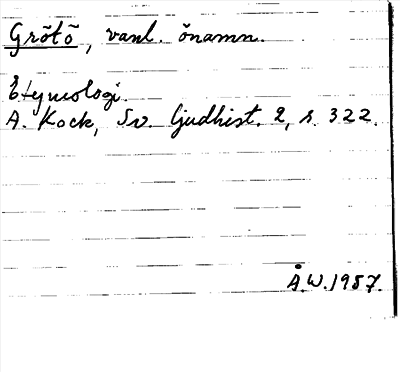 Grötö, vanl. önamn.
Etymologi.
A. Kock, Sv. ljudhist. 2, s. 322.
Å.W. 1957.